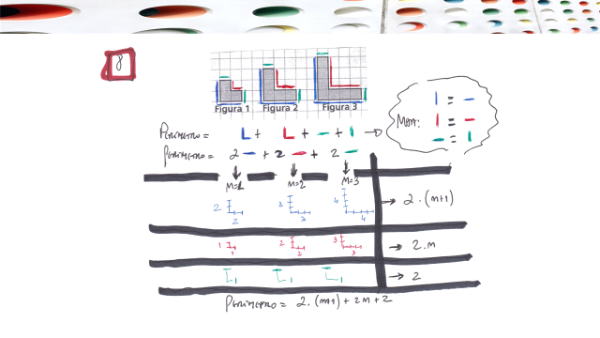 8
Figura 1 Figura 2 Figura 3
Perímetro = L + L + - + |
Perímetro = 2 - + 2 - + 2 -
| = -
| = -
- = |
m=1 m=2 m=3
2 2 3 3 4 4 → 2.(m+1)
1 1 2 2 3 3 → 2.m
1 1 1 → 2
Perímetro = 2.(m+1) + 2m + 2